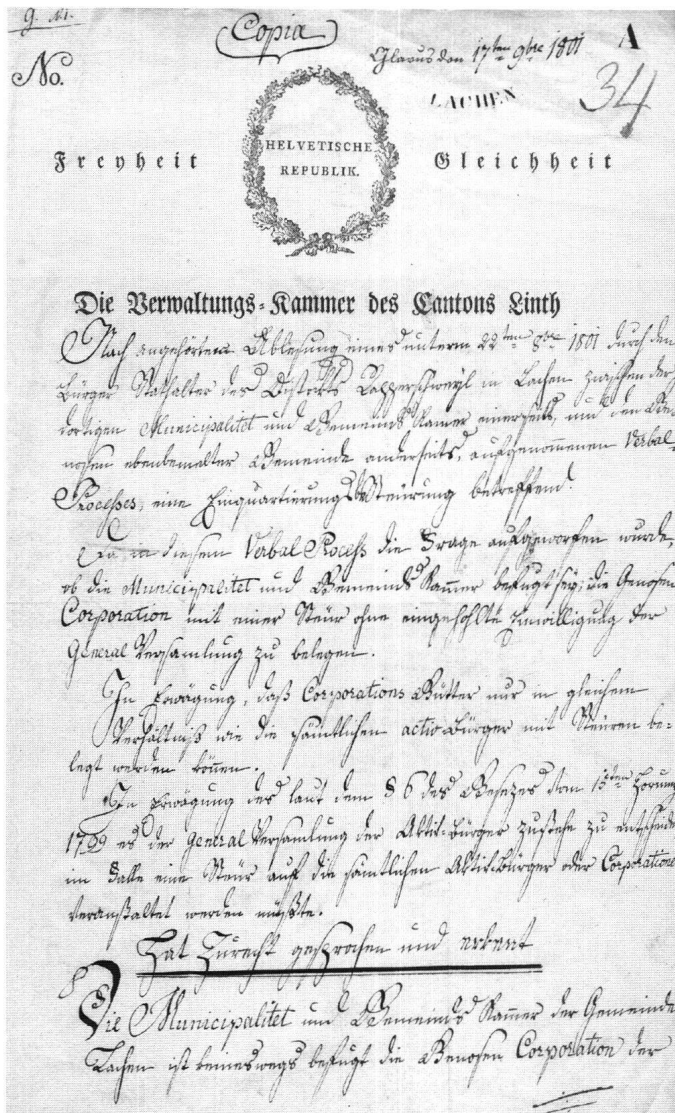 Copia
Glarus den 17ten 9bre 1801
A
No.
LACHEN
34
Freyheit
HELVETISCHE
REPUBLIK.
Gleichheit
Die Verwaltungs-Kammer des Cantons Linth
Nach angehörter Ablesung eines unterm 22ten 8bre 1801 durch den
Bürger Stathalter des Distrikts Rapperschweyl in Lachen zwischen der
dortigen Municipalitet und Gemeinds Kamer einerseits, und den Ge-
nosen ebenbemelter Gemeinde anderseits, aufgenommenen Verbal-
Processes, eine Einquartierungs Steurung betreffend.
Da in diesem Verbal Process die Frage aufgeworfen wurde,
ob die Municipalitet und Gemeinds Kammer befugt sey, die Genosen
Corporation mit einer Steur ohne eingehohlte Einwilligung der
General Versamlung zu belegen.
In Erwägung, daß Corporations Gütter nur in gleichem
Verhältniß wie die sämtlichen activ Bürger mit Steuren be-
legt werden können.
In Erwägung das laut dem § 6 des Gesezes vom 15ten Hornung
1799 es der General Versamlung der Aktiv-Bürger zustehe zu entscheiden
im Falle eine Steur auf die sämtlichen Aktiv-Bürger oder Corporationen
veranstaltet werden müßte.
Hat Zurecht gesprochen und erkent
Die Municipalitet und Gemeinds Kamer der Gemeinde
Lachen ist keineswegs befugt die Genosen Corporation der